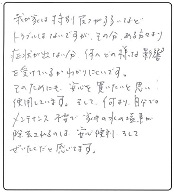 我が家は特別仮でがうるいほど
トラブルはないですが、その分あまり
症状が出ない分 何への様な影響
を受けているかわかりにくいです。
そのためにも 安心を買いたいと思い
使用しています。そして、何より、自分で
メンテナンス 不要で 家中の水の塩素が
除去されるのは 安心 便利 そして
ぜいたくだと感じてます。